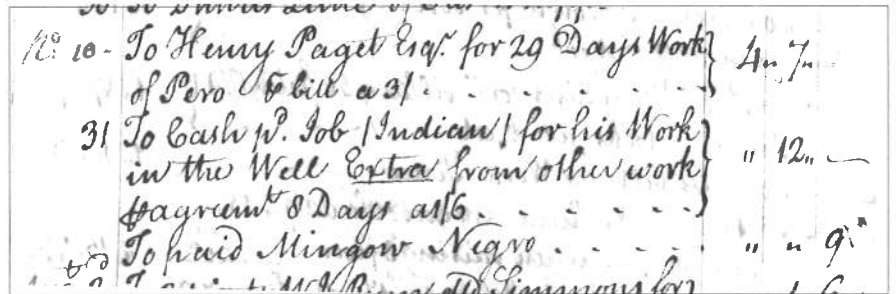 No. 10 - To Henry Paget Esqr. for 29 Days Work } 4 " 7 "
of Pero ⅌ bill a 3/ . . . . . .
31 To Cash pd. Job /Indian/ for his Work
in the Well Extra from other work } " 12 " —
⅌ agreemt. 8 Days a 1/6 . . . . . .
To paid Mingow Negro . . . . . " " 9